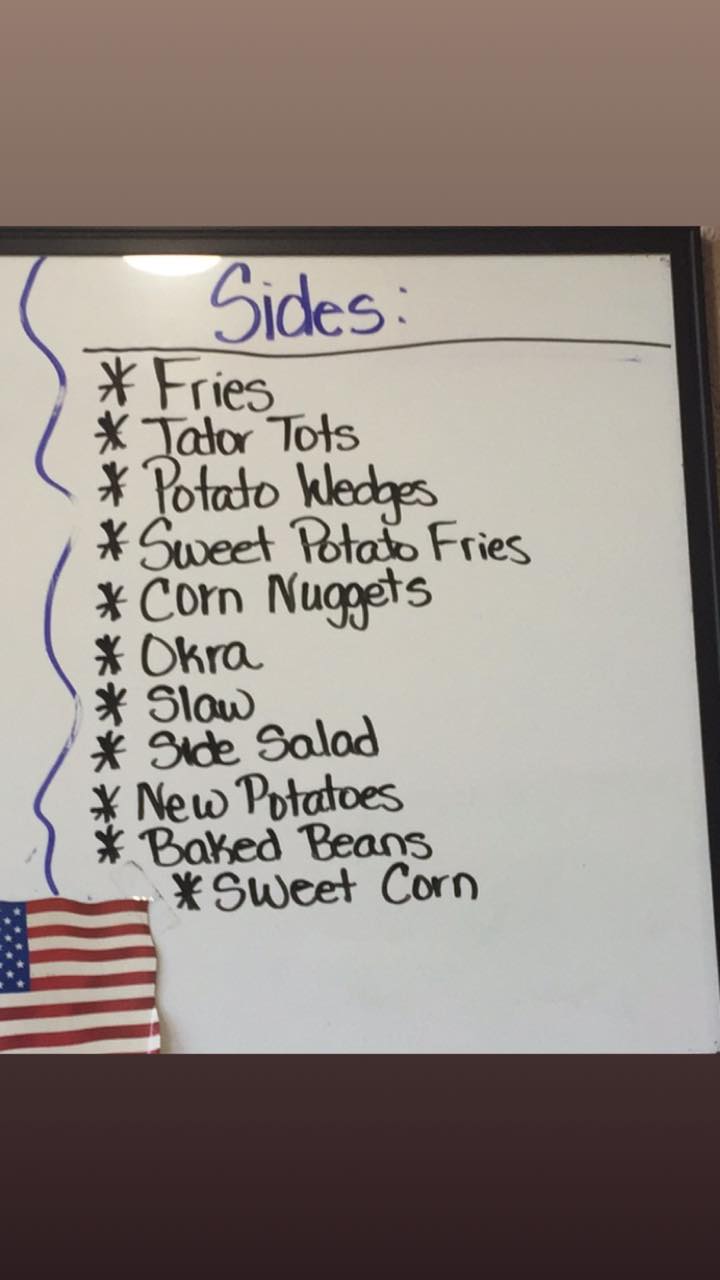 Sides:
* Fries
* Tator Tots
* Potato Wedges
* Sweet Potato Fries
* Corn Nuggets
* Okra
* Slaw
* Side Salad
* New Potatoes
* Baked Beans
* Sweet Corn